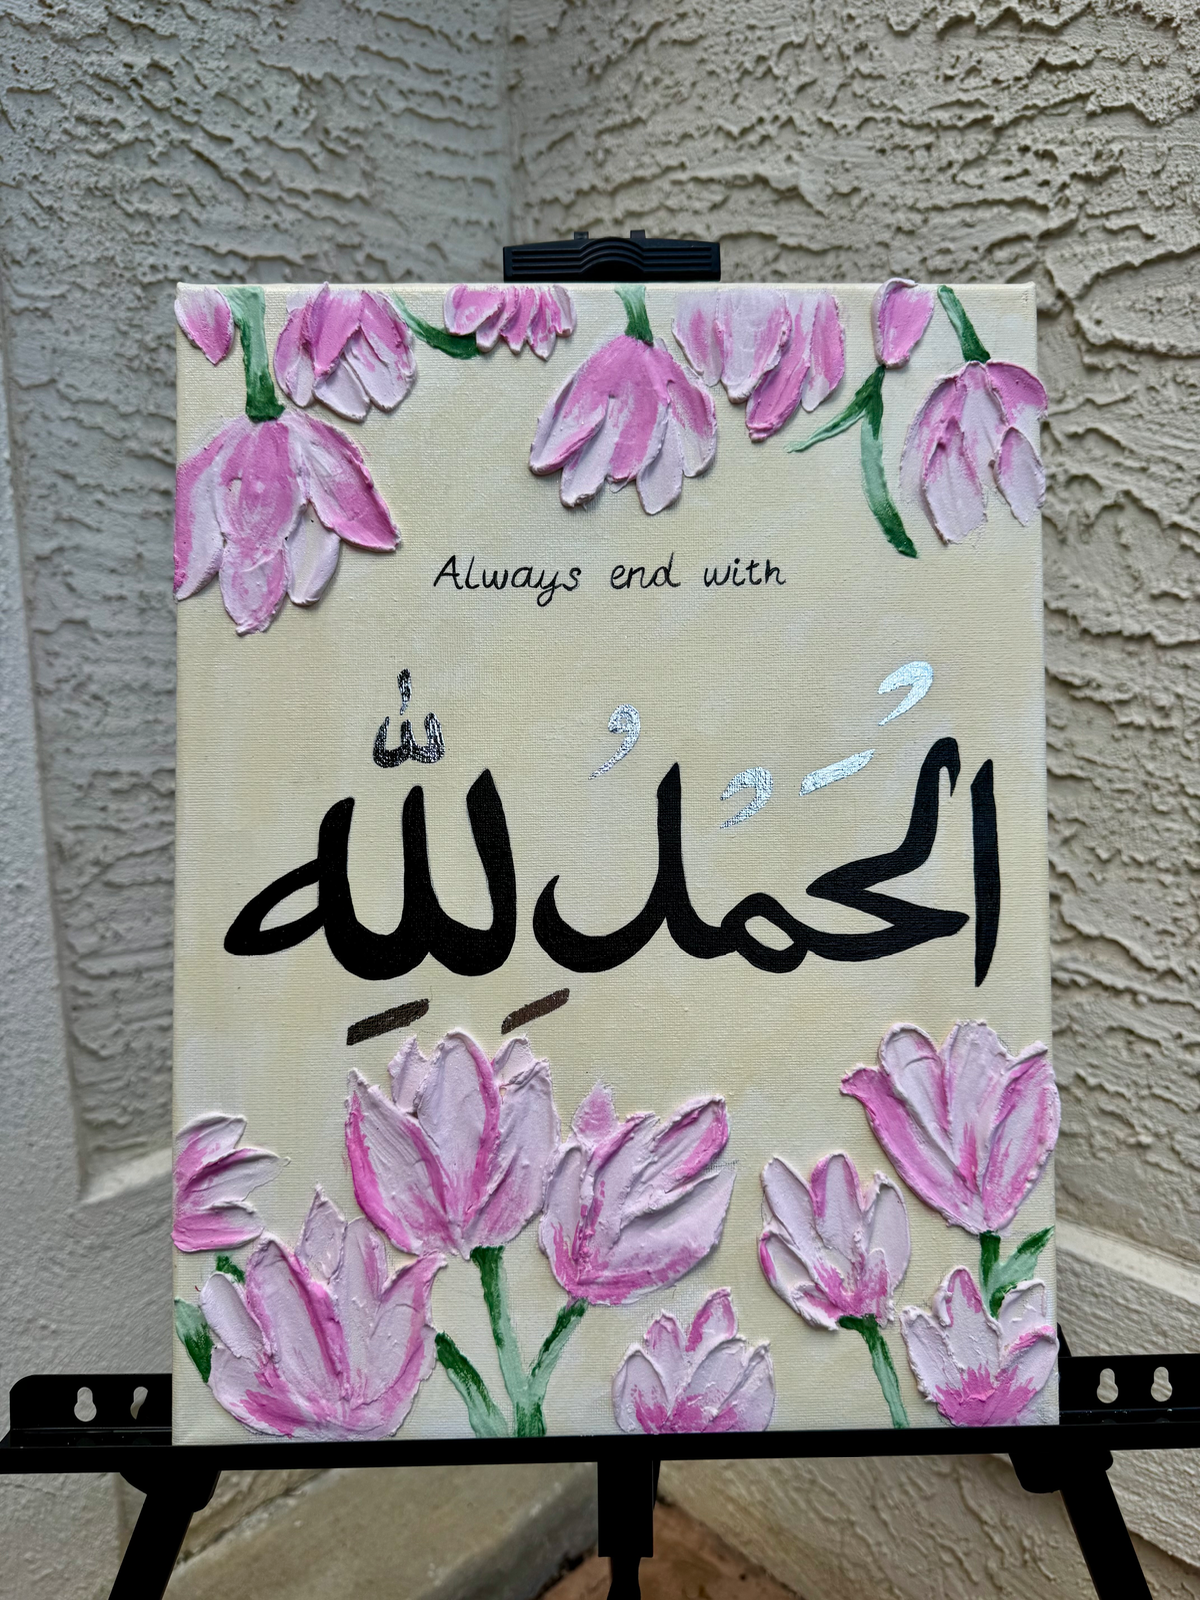 Always end with
الْحَمْدُ لِلّٰهِ